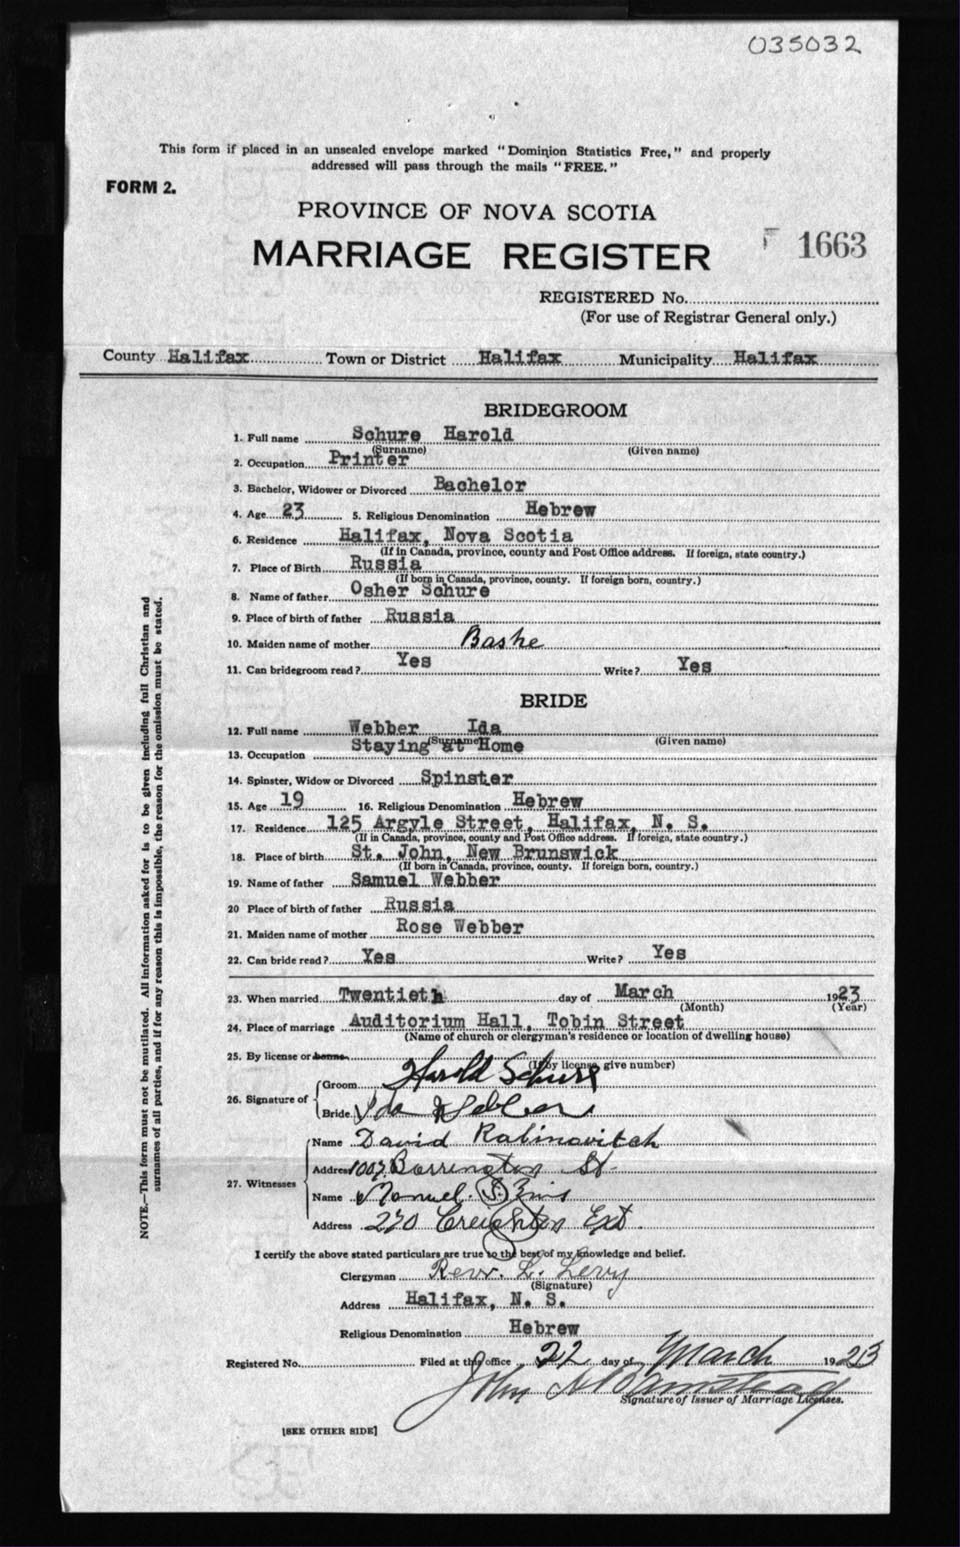 035032
This form if placed in an unsealed envelope marked "Dominion Statistics Free," and properly
addressed will pass through the mails "FREE."
FORM 2.
PROVINCE OF NOVA SCOTIA
MARRIAGE REGISTER 1663
REGISTERED No.
(For use of Registrar General only.)
County Halifax Town or District Halifax Municipality Halifax
BRIDEGROOM
1. Full name Schure Harold
(Surname) (Given name)
2. Occupation Printer
3. Bachelor, Widower or Divorced Bachelor
4. Age 23 5. Religious Denomination Hebrew
6. Residence Halifax, Nova Scotia
(If in Canada, province, county and Post Office address. If foreign, state country.)
7. Place of Birth Russia
(If born in Canada, province, county. If foreign born, country.)
8. Name of father Osher Schure
9. Place of birth of father Russia
10. Maiden name of mother Bashe
11. Can bridegroom read? Yes Write? Yes
BRIDE
12. Full name Webber Ida
(Surname) (Given name)
13. Occupation Staying at Home
14. Spinster, Widow or Divorced Spinster
15. Age 19 16. Religious Denomination Hebrew
17. Residence 125 Argyle Street, Halifax, N. S.
(If in Canada, province, county and Post Office address. If foreign, state country.)
18. Place of birth St. John, New Brunswick
(If born in Canada, province, county. If foreign born, country.)
19. Name of father Samuel Webber
20 Place of birth of father Russia
21. Maiden name of mother Rose Webber
22. Can bride read? Yes Write? Yes
23. When married Twentieth day of March 1923
(Month) (Year)
24. Place of marriage Auditorium Hall, Tobin Street
(Name of church or clergyman's residence or location of dwelling house)
25. By license or banns
(If by license, give number)
26. Signature of
Groom Harold Schure
Bride Ida Webber
27. Witnesses
Name David Rabinovitch
Address Barrington St.
Name Manuel
Address 270 Creighton Ext.
I certify the above stated particulars are true to the best of my knowledge and belief.
Clergyman Revr. L. Levy
(Signature)
Address Halifax, N. S.
Religious Denomination Hebrew
Registered No. Filed at this office 22 day of March 1923
John
Signature of Issuer of Marriage Licenses.
[SEE OTHER SIDE]
NOTE.—This form must not be mutilated. All information asked for is to be given including full Christian and
surnames of all parties, and if for any reason this is impossible, the reason for the omission must be stated.